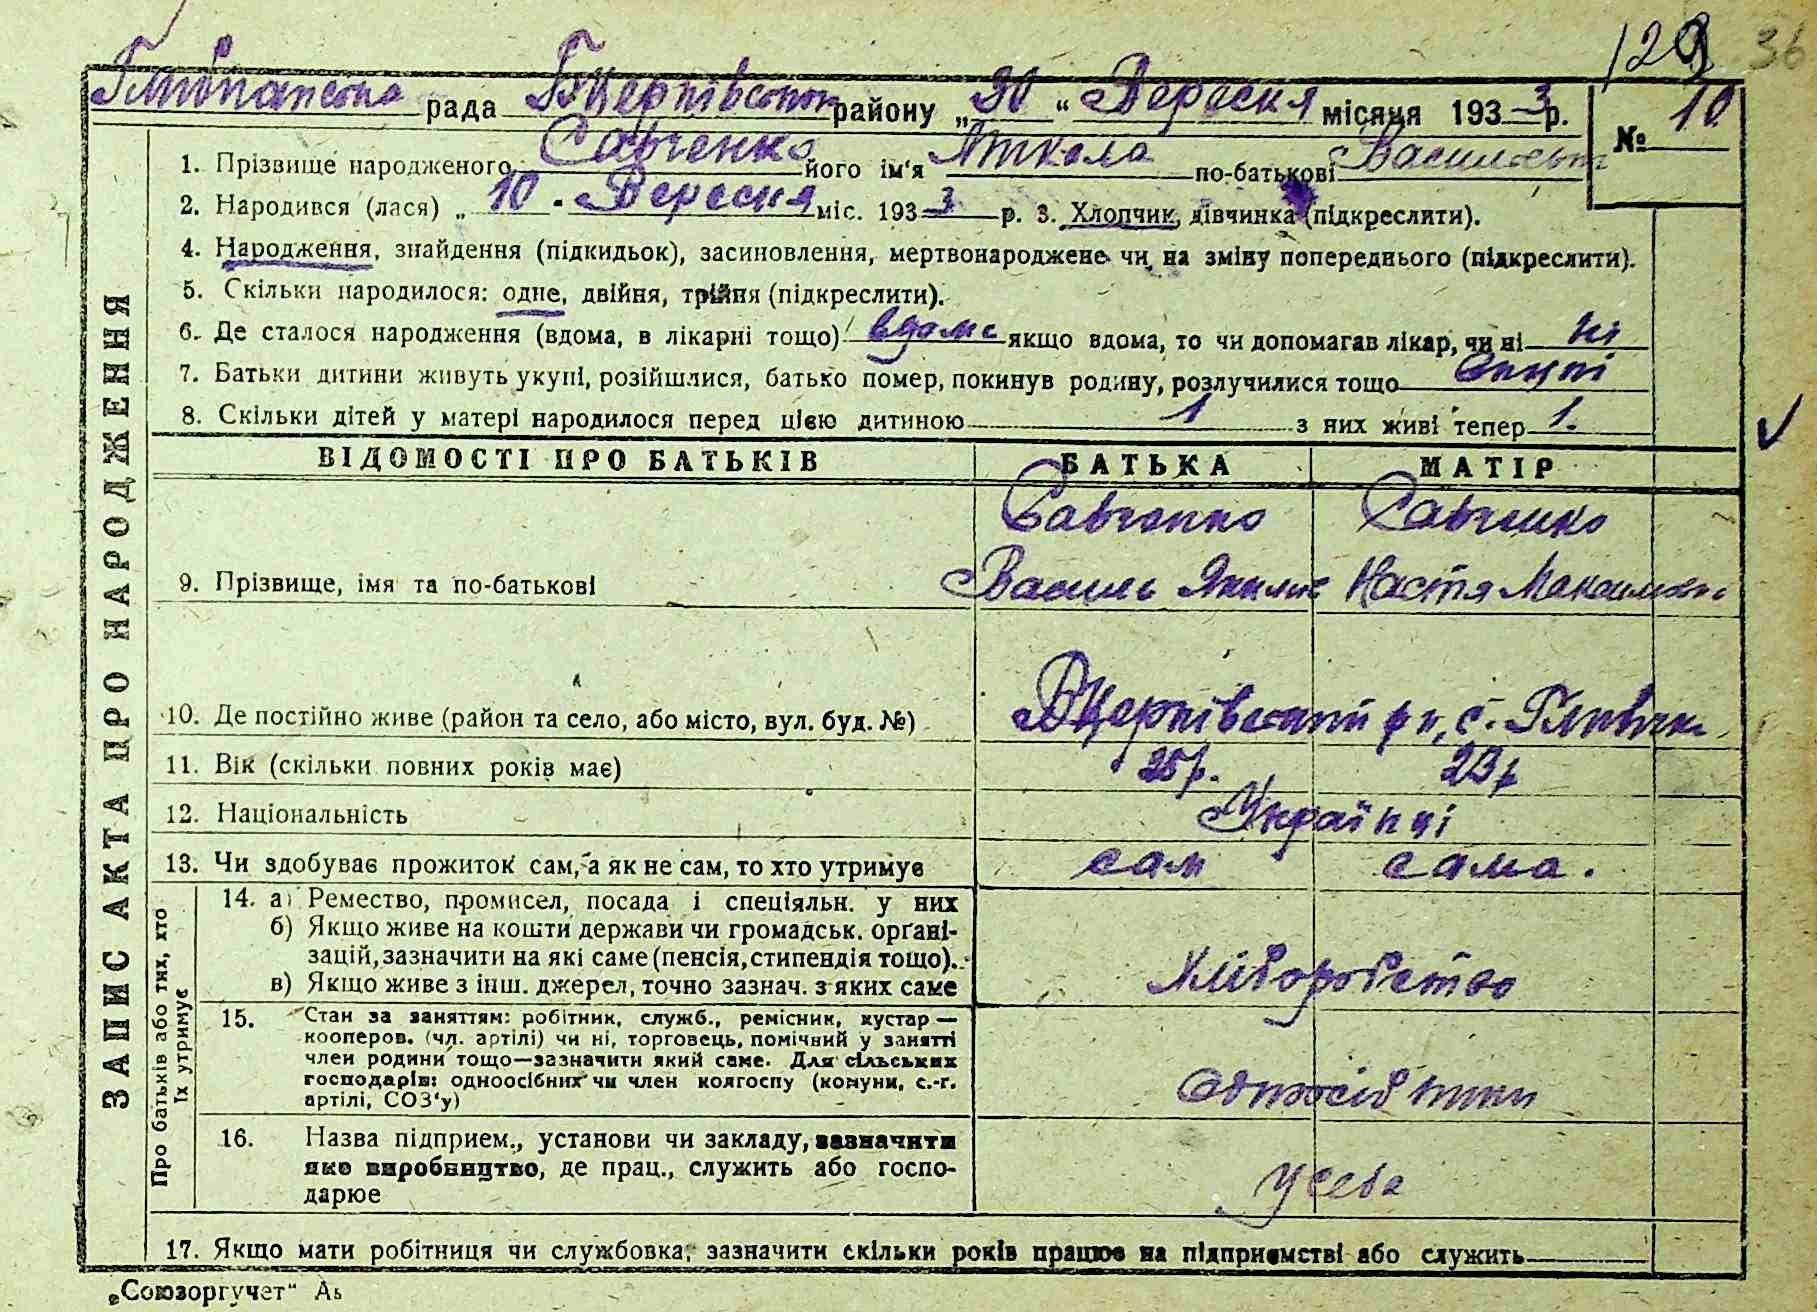 129 36
рада Б Церківськ району „ 30 “ Вересня місяця 193 3 р. № 10
1. Прізвище народженого Савченко його ім'я Микола по-батькові
2. Народився (лася) „ 10 - Вересня міс. 193 3 р. 3. Хлопчик, дівчинка (підкреслити).
4. Народження, знайдення (підкидьок), засиновлення, мертвонароджене чи на зміну попереднього (підкреслити).
5. Скільки народилося: одне, двійня, трійня (підкреслити).
6. Де сталося народження (вдома, в лікарні тощо) вдома якщо вдома, то чи допомагав лікар, чи ні ні
7. Батьки дитини живуть укупі, розійшлися, батько помер, покинув родину, розлучилися тощо вкупі
8. Скільки дітей у матері народилося перед цією дитиною 1 з них живі тепер 1.
ВІДОМОСТІ ПРО БАТЬКІВ БАТЬКА МАТІР
Савченко Савченко
9. Прізвище, імя та по-батькові Василь Настя
10. Де постійно живе (район та село, або місто, вул. буд. №) БЦерківський р н, с.
11. Вік (скільки повних років має) 25 р. 23 р
12. Національність Українці
13. Чи здобуває прожиток сам, а як не сам, то хто утримує сам сама.
14. а) Ремество, промисел, посада і спеціяльн. у них
б) Якщо живе на кошти держави чи громадськ. орґані-
зацій, зазначити на які саме (пенсія, стипендія тощо).
в) Якщо живе з інш. джерел, точно зазнач. з яких саме
Хліборобство
15. Стан за заняттям: робітник, служб., ремісник, кустар —
кооперов. (чл. артілі) чи ні, торговець, помічний у занятті
член родини тощо—зазначити який саме. Для сільських
господарів: одноосібник чи член колгоспу (комуни, с.-г.
артілі, СОЗ'у)
Одноосібники
16. Назва підприєм., установи чи закладу, зазначити
яке виробництво, де прац., служить або госпо-
дарює
У себе
17. Якщо мати робітниця чи службовка, зазначити скільки років працює на підприємстві або служить
ЗАПИС АКТА ПРО НАРОДЖЕННЯ
Про батьків або тих, хто
їх утримує
„Союзоргучет“